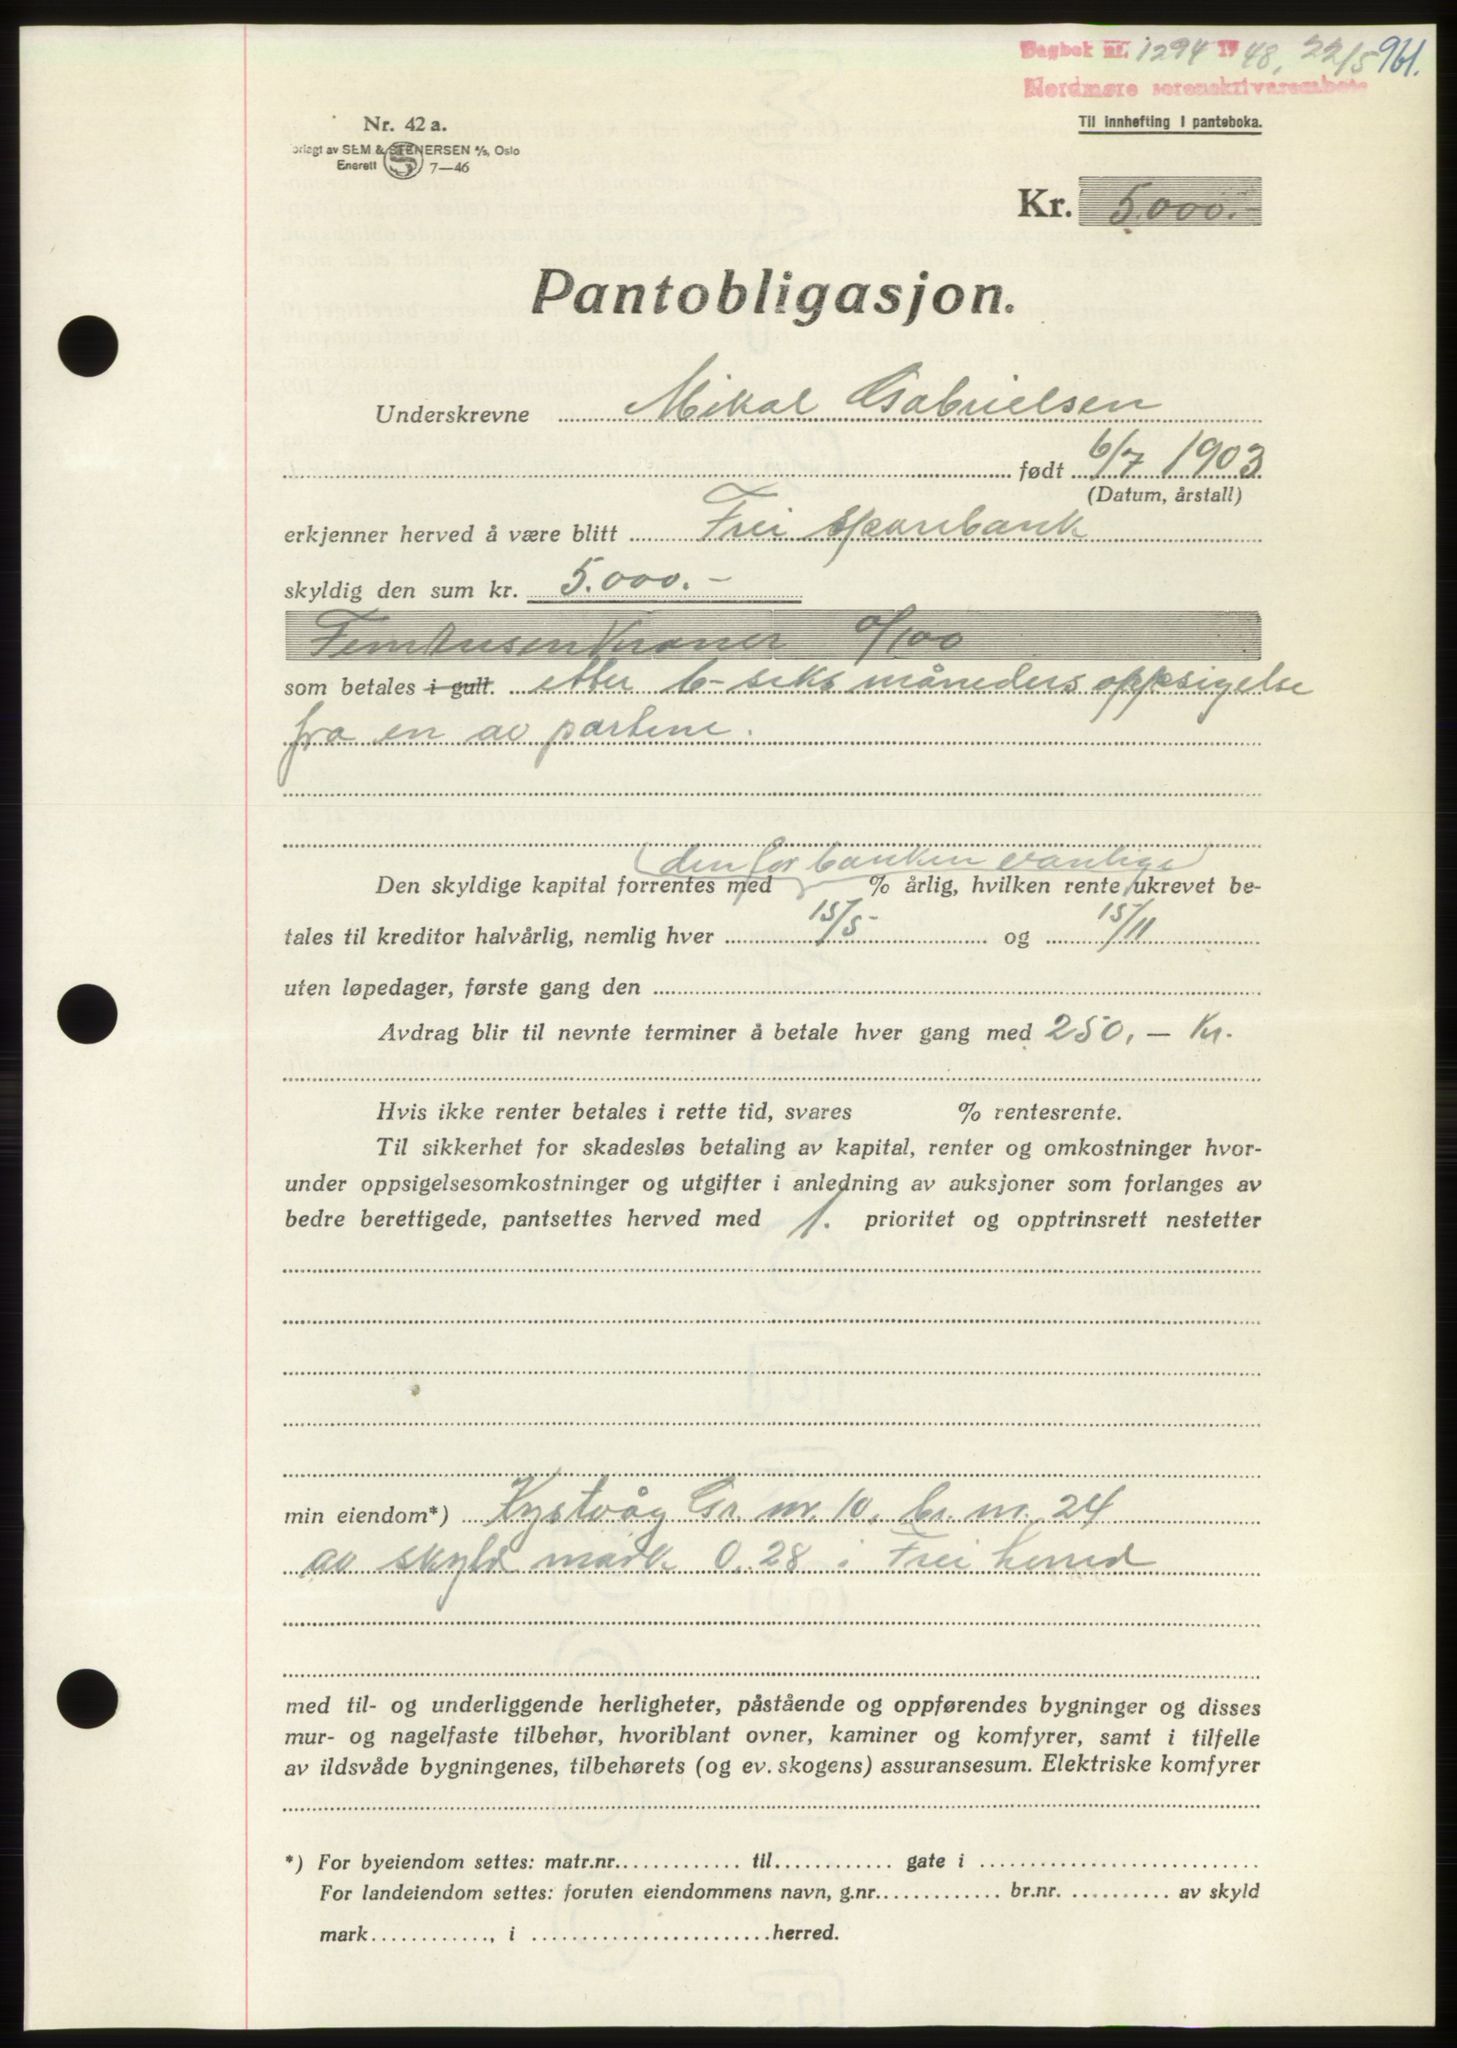 Dagbok nr. 1294 1948, 22/5 961.
Nordmøre sorenskrivarembete
Nr. 42 a.
Til innhefting i panteboka.
orlagt av SEM & STENERSEN A/S, Oslo
Enerett 7—46
Kr. 5.000.-
Pantobligasjon.
Underskrevne Mikal Gabrielsen
født 6/7 1903
(Datum, årstall)
erkjenner herved å være blitt Frei sparebank
skyldig den sum kr. 5.000.-
Femtusenkroner 0/100
som betales i gull. etter 6- seks måneders oppsigelse
fra en av partene.
den for banken vanlige
Den skyldige kapital forrentes med % årlig, hvilken rente ukrevet be-
tales til kreditor halvårlig, nemlig hver 15/5- og 15/11
uten løpedager, første gang den
Avdrag blir til nevnte terminer å betale hver gang med 250,- Kr.
Hvis ikke renter betales i rette tid, svares % rentesrente.
Til sikkerhet for skadesløs betaling av kapital, renter og omkostninger hvor-
under oppsigelsesomkostninger og utgifter i anledning av auksjoner som forlanges av
bedre berettigede, pantsettes herved med 1. prioritet og opptrinsrett nestetter
min eiendom*) Kystvåg Gr. nr. 10, br. nr. 24
av skyld mark 0.28 i Frei herred
med til- og underliggende herligheter, påstående og oppførendes bygninger og disses
mur- og nagelfaste tilbehør, hvoriblant ovner, kaminer og komfyrer, samt i tilfelle
av ildsvåde bygningenes, tilbehørets (og ev. skogens) assuransesum. Elektriske komfyrer
*) For byeiendom settes: matr.nr............. til............ gate i ............................
For landeiendom settes: foruten eiendommens navn, g.nr............. br.nr. .......... av skyld
mark............, i ........................herred.